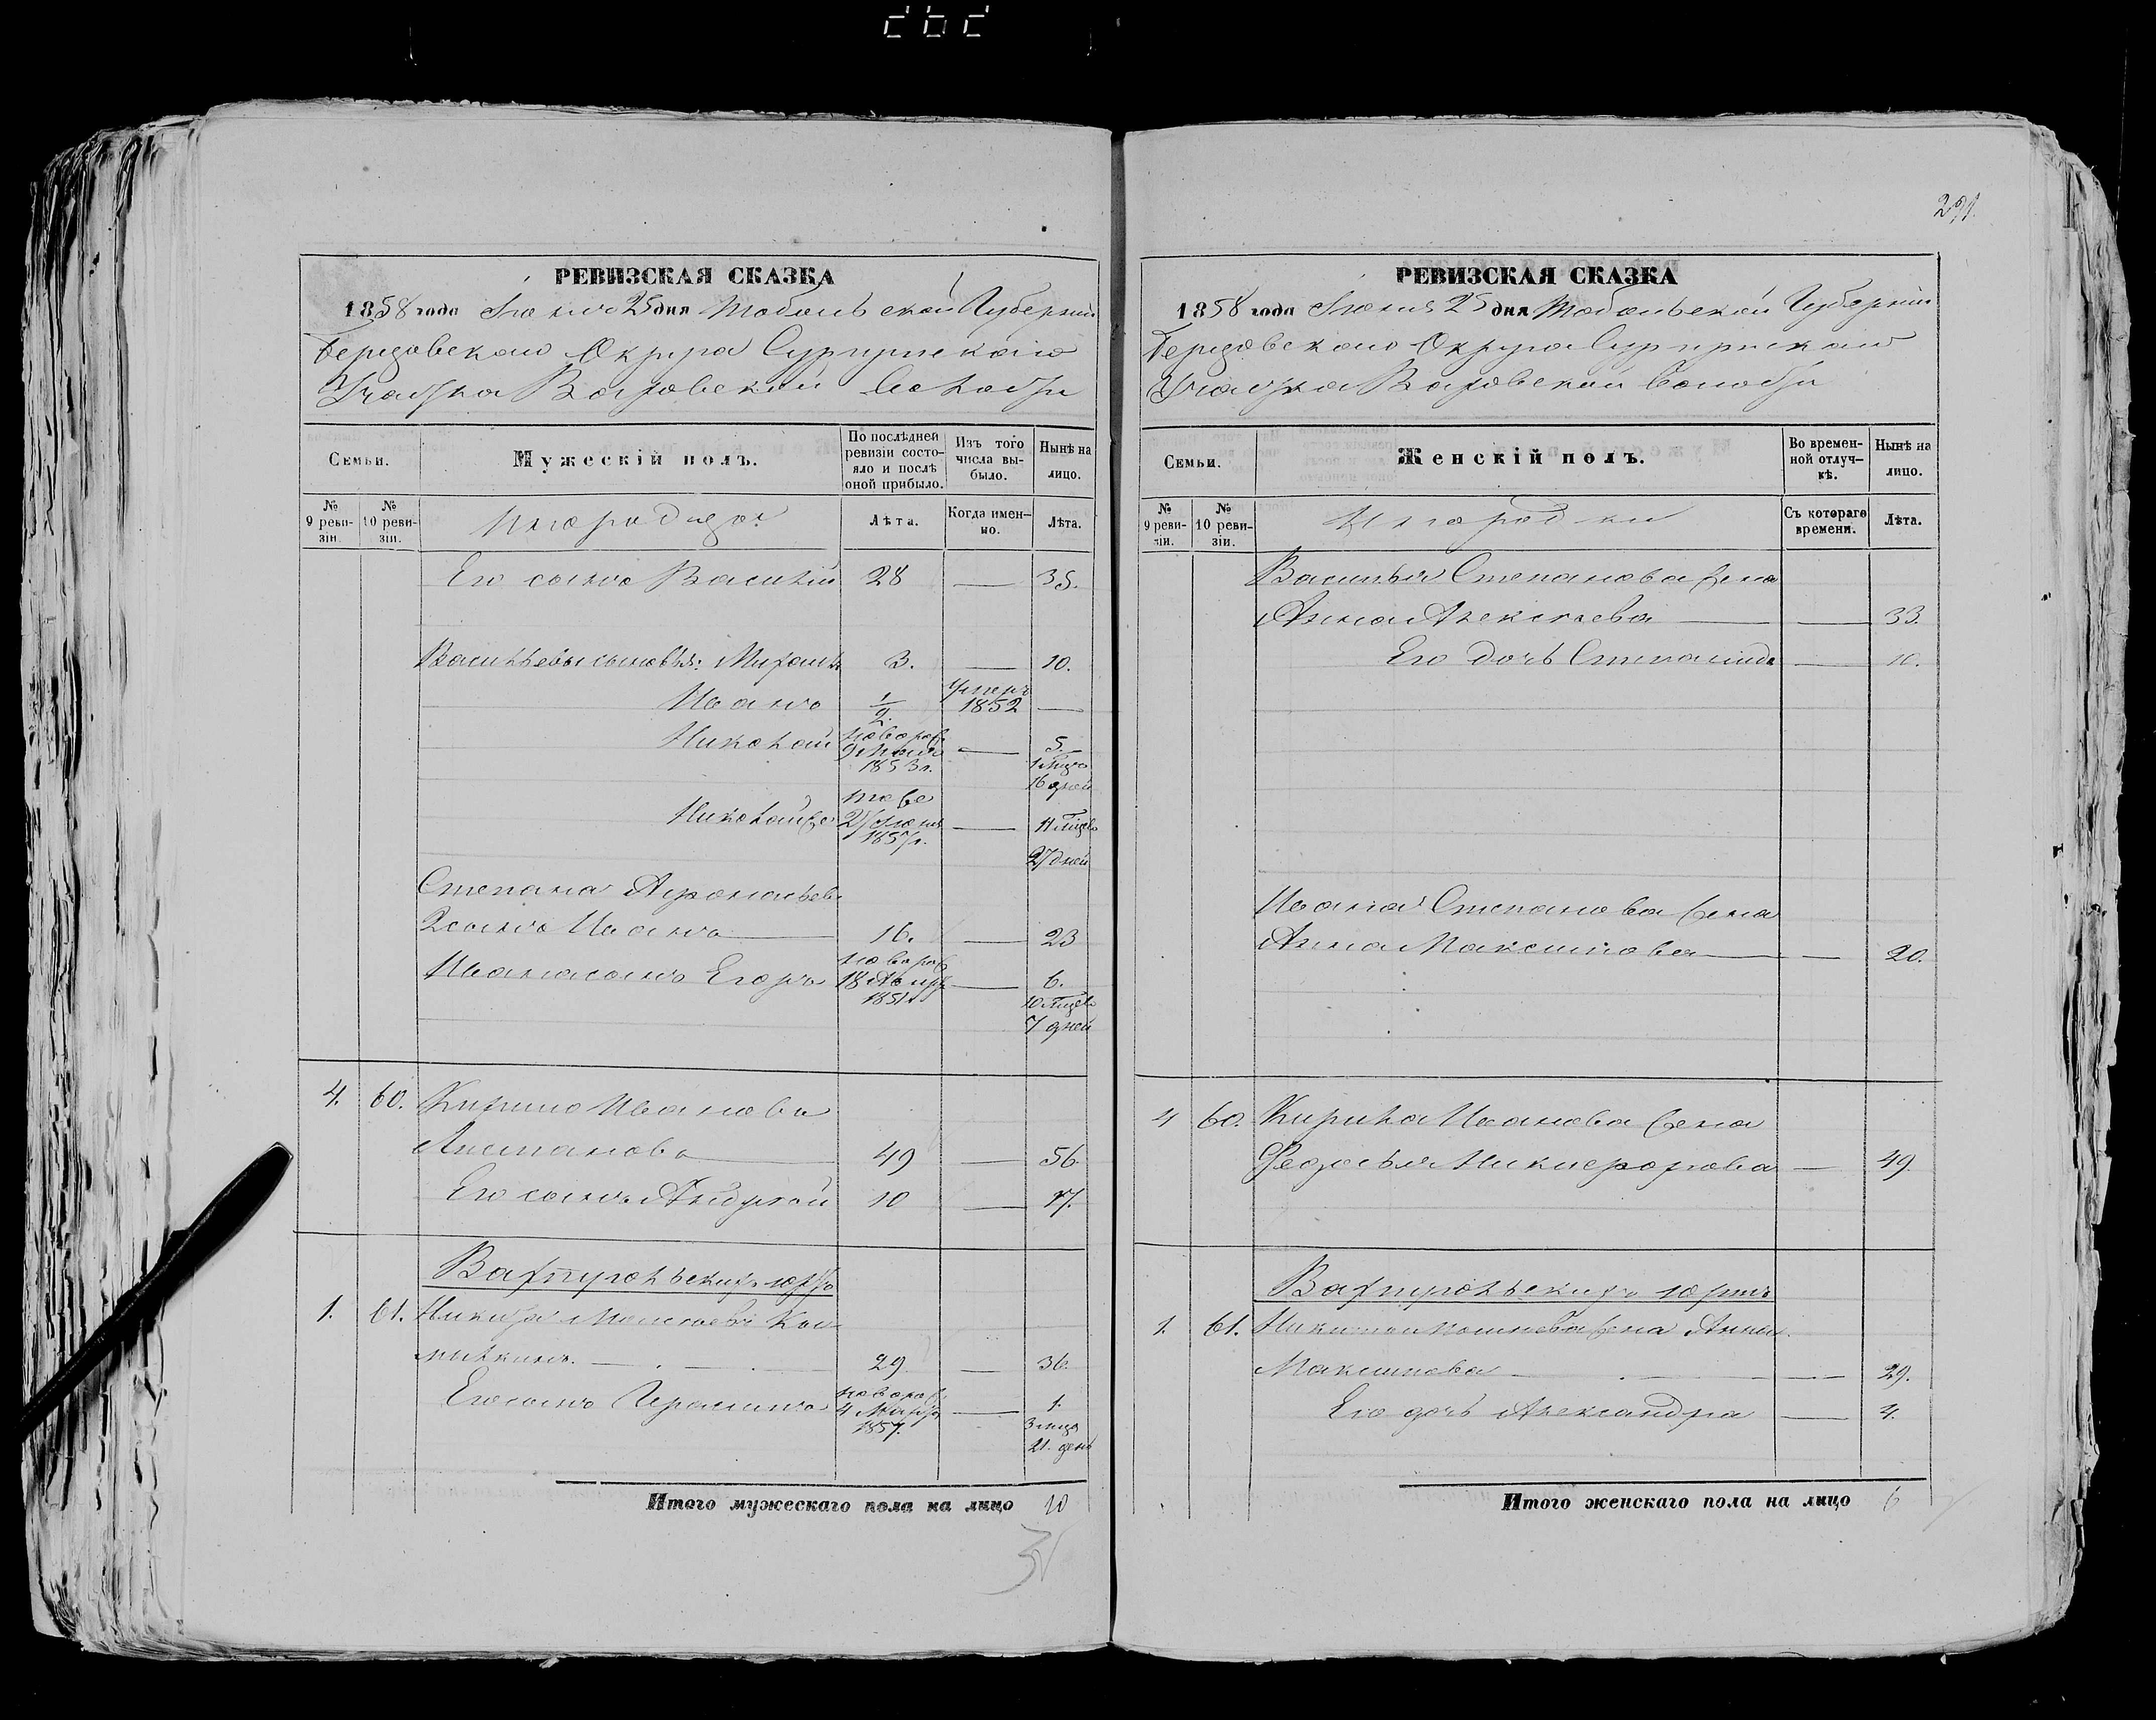 291.
РЕВИЗСКАЯ СКАЗКА
1858 года Іюня 25 дня Тобольской Губерніи
Березовскаго Округа Сургутскаго
Участка Ваховской Волости
Семьи.
Мужескій полъ.
По послѣдней ревизіи состояло и послѣ оной прибыло.
Изъ того числа выбыло.
Нынѣ на лицо.
№ 9 ревизіи.
№ 10 ревизіи.
Лѣта.
Когда именно.
Лѣта.
Его сынъ Василій 28 — 35.
Васильевы сыновья: 3. — 10.
Иванъ 1/2. умеръ 1852 —
Николай новорож 9 Маія 1853 г. — 5. 1 мѣсяц 16 дней
тоже
1857 г. — 11 мѣсяц
27 дней
Степана
2 сынъ Иванъ 16. — 23
Ивана сынъ Егоръ новорож 18 1851 — 6.
10 мѣсяц
7 дней
4. 60. Кирило Ивановъ
49 — 56
Его сынъ Андрей 10 — 17.
юртъ
1. 61. Никита
29 — 36.
Его сынъ Герасимъ новорож 4 Марта 1857. — 1.
3 мѣсяц
21. день
Итого мужескаго пола на лицо 10
РЕВИЗСКАЯ СКАЗКА
1858 года Іюня 25 дня Тобольской Губерніи
Березовскаго Округа Сургутскаго
Участка Ваховской Волости
Семьи.
Женскій полъ.
Во временной отлучкѣ.
Нынѣ на лицо.
№ 9 ревизіи.
№ 10 ревизіи.
Инородки
Съ котораго времени.
Лѣта.
Василья Степанова жена
Анна Алексѣева — 33.
Его дочь Степанида — 10.
Ивана Степанова жена
Анна Максимова — 20.
4 60. Кирила Иванова жена
Федосья Никифорова — 49
юртъ
1. 61. Никиты жена Анна
Максимова — 29.
Его дочь Александра — 4.
Итого женскаго пола на лицо 6